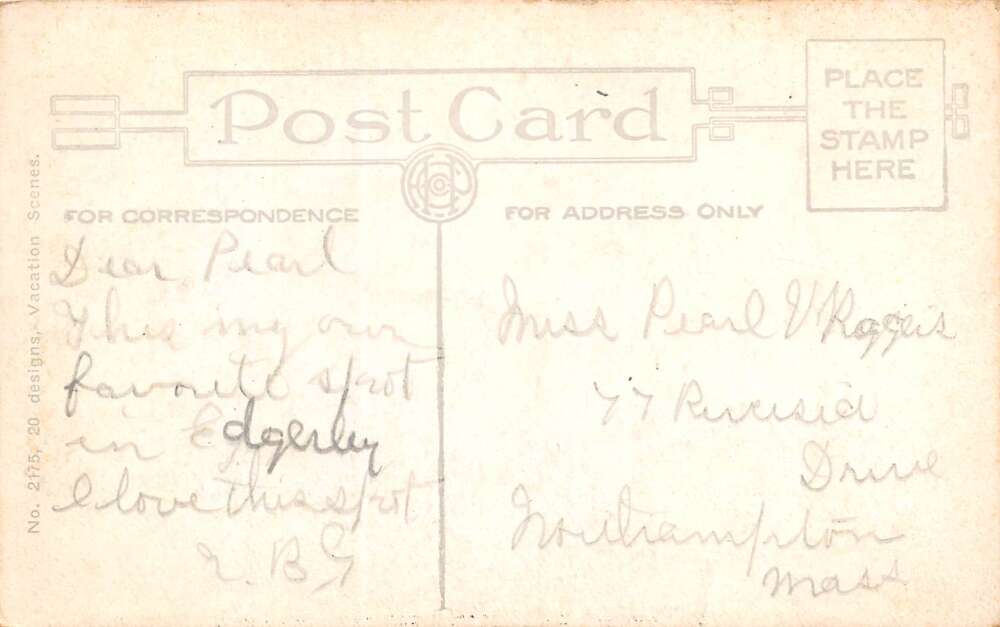 Post Card
PLACE
THE
STAMP
HERE
FOR CORRESPONDENCE
FOR ADDRESS ONLY
No. 2175, 20 designs, Vacation Scenes.
Dear Pearl
This my own
favorite spot
in Edgerley
I love this spot
Miss Pearl V
77 Riverside
Drive
Northampton
Mass